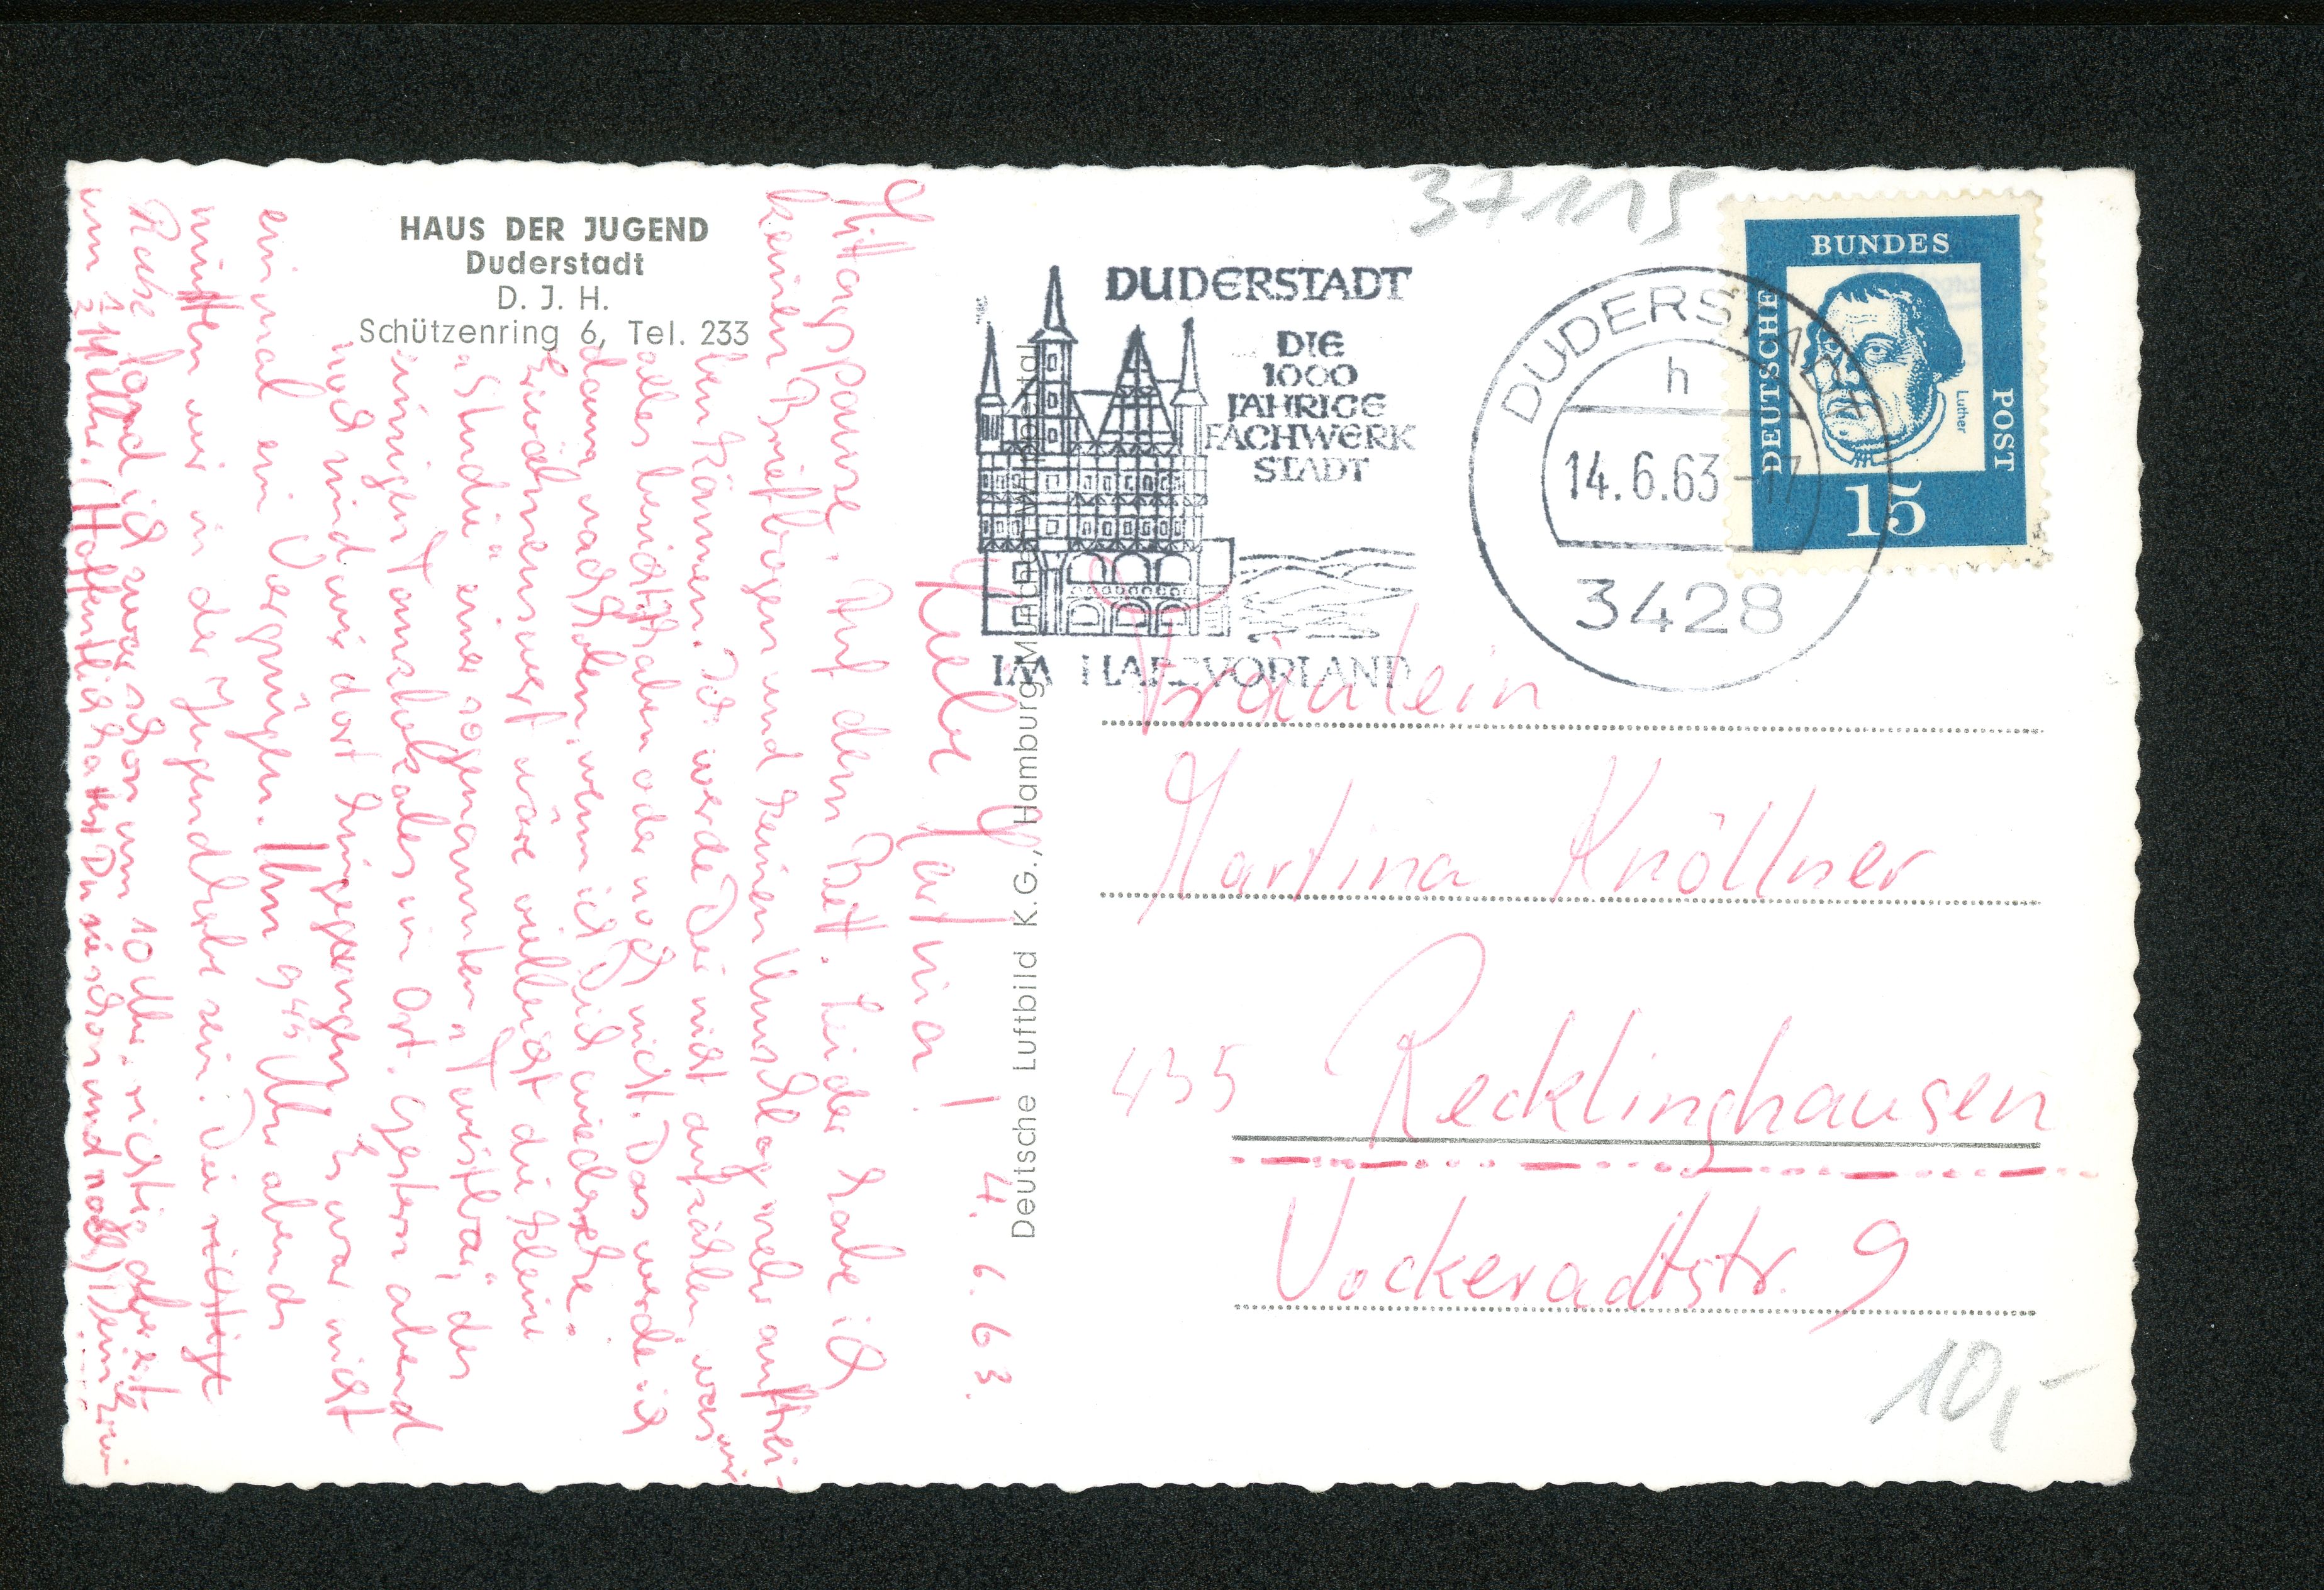 HAUS DER JUGEND
Duderstadt
D. J. H.
Schützenring 6, Tel. 233
4. 6. 63.
Liebe Martina!
Mittagspause. Auf dem Bett. Leider habe ich
keinen Briefbogen und keinen Umschlag mehr auftrei-
ben können. Ich werde Dir nicht aufzählen, was wir
alles besichtigt haben oder noch nicht. Das werde ich
dann nachholen, wenn ich Dich wiedersehe.
Erwähnenswert wäre vielleicht die kleine
"Studie" einer sogenannten "Twistbar", des
einzigen Tanzlokales im Ort. Gestern abend
noch sind wir dort hingegangen. Es war nicht
einmal ein Vergnügen. Um 9 45 Uhr abends
mußten wir in der Jugendherberge sein. Die richtige
Ruhe fand ich zwar schon um 10 Uhr, richtig aber erst
um ½ 1 Uhr. (Hoffentlich hattest Du sie schon und noch) Dein
DUDERSTADT
DIE
1000
JÄHRIGE
FACHWERK
STADT
IM HARZVORLAND
DUDERSTADT
h
14.6.63-17
3428
BUNDES
DEUTSCHE
POST
Luther
15
37115
Deutsche Luftbild K.G., Hamburg
Fräulein
Martina Knöllner
435 Recklinghausen
Vockeradtstr. 9
10,-